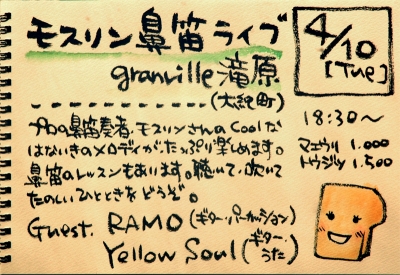 モスリン鼻笛ライブ
4/10
[Tue]
granville 滝原
(大紀町)
18:30〜
マエウリ 1.000
トウジツ 1.500
プロの鼻笛奏者、モスリンさんのCoolな
はないきのメロディがたっぷり楽しめます。
鼻笛のレッスンもあります。聴いて、吹いて
たのしいひとときをどうぞ。
Guest. RAMO (ギター・パーカッション)
Yellow Soul (ギター・うた)